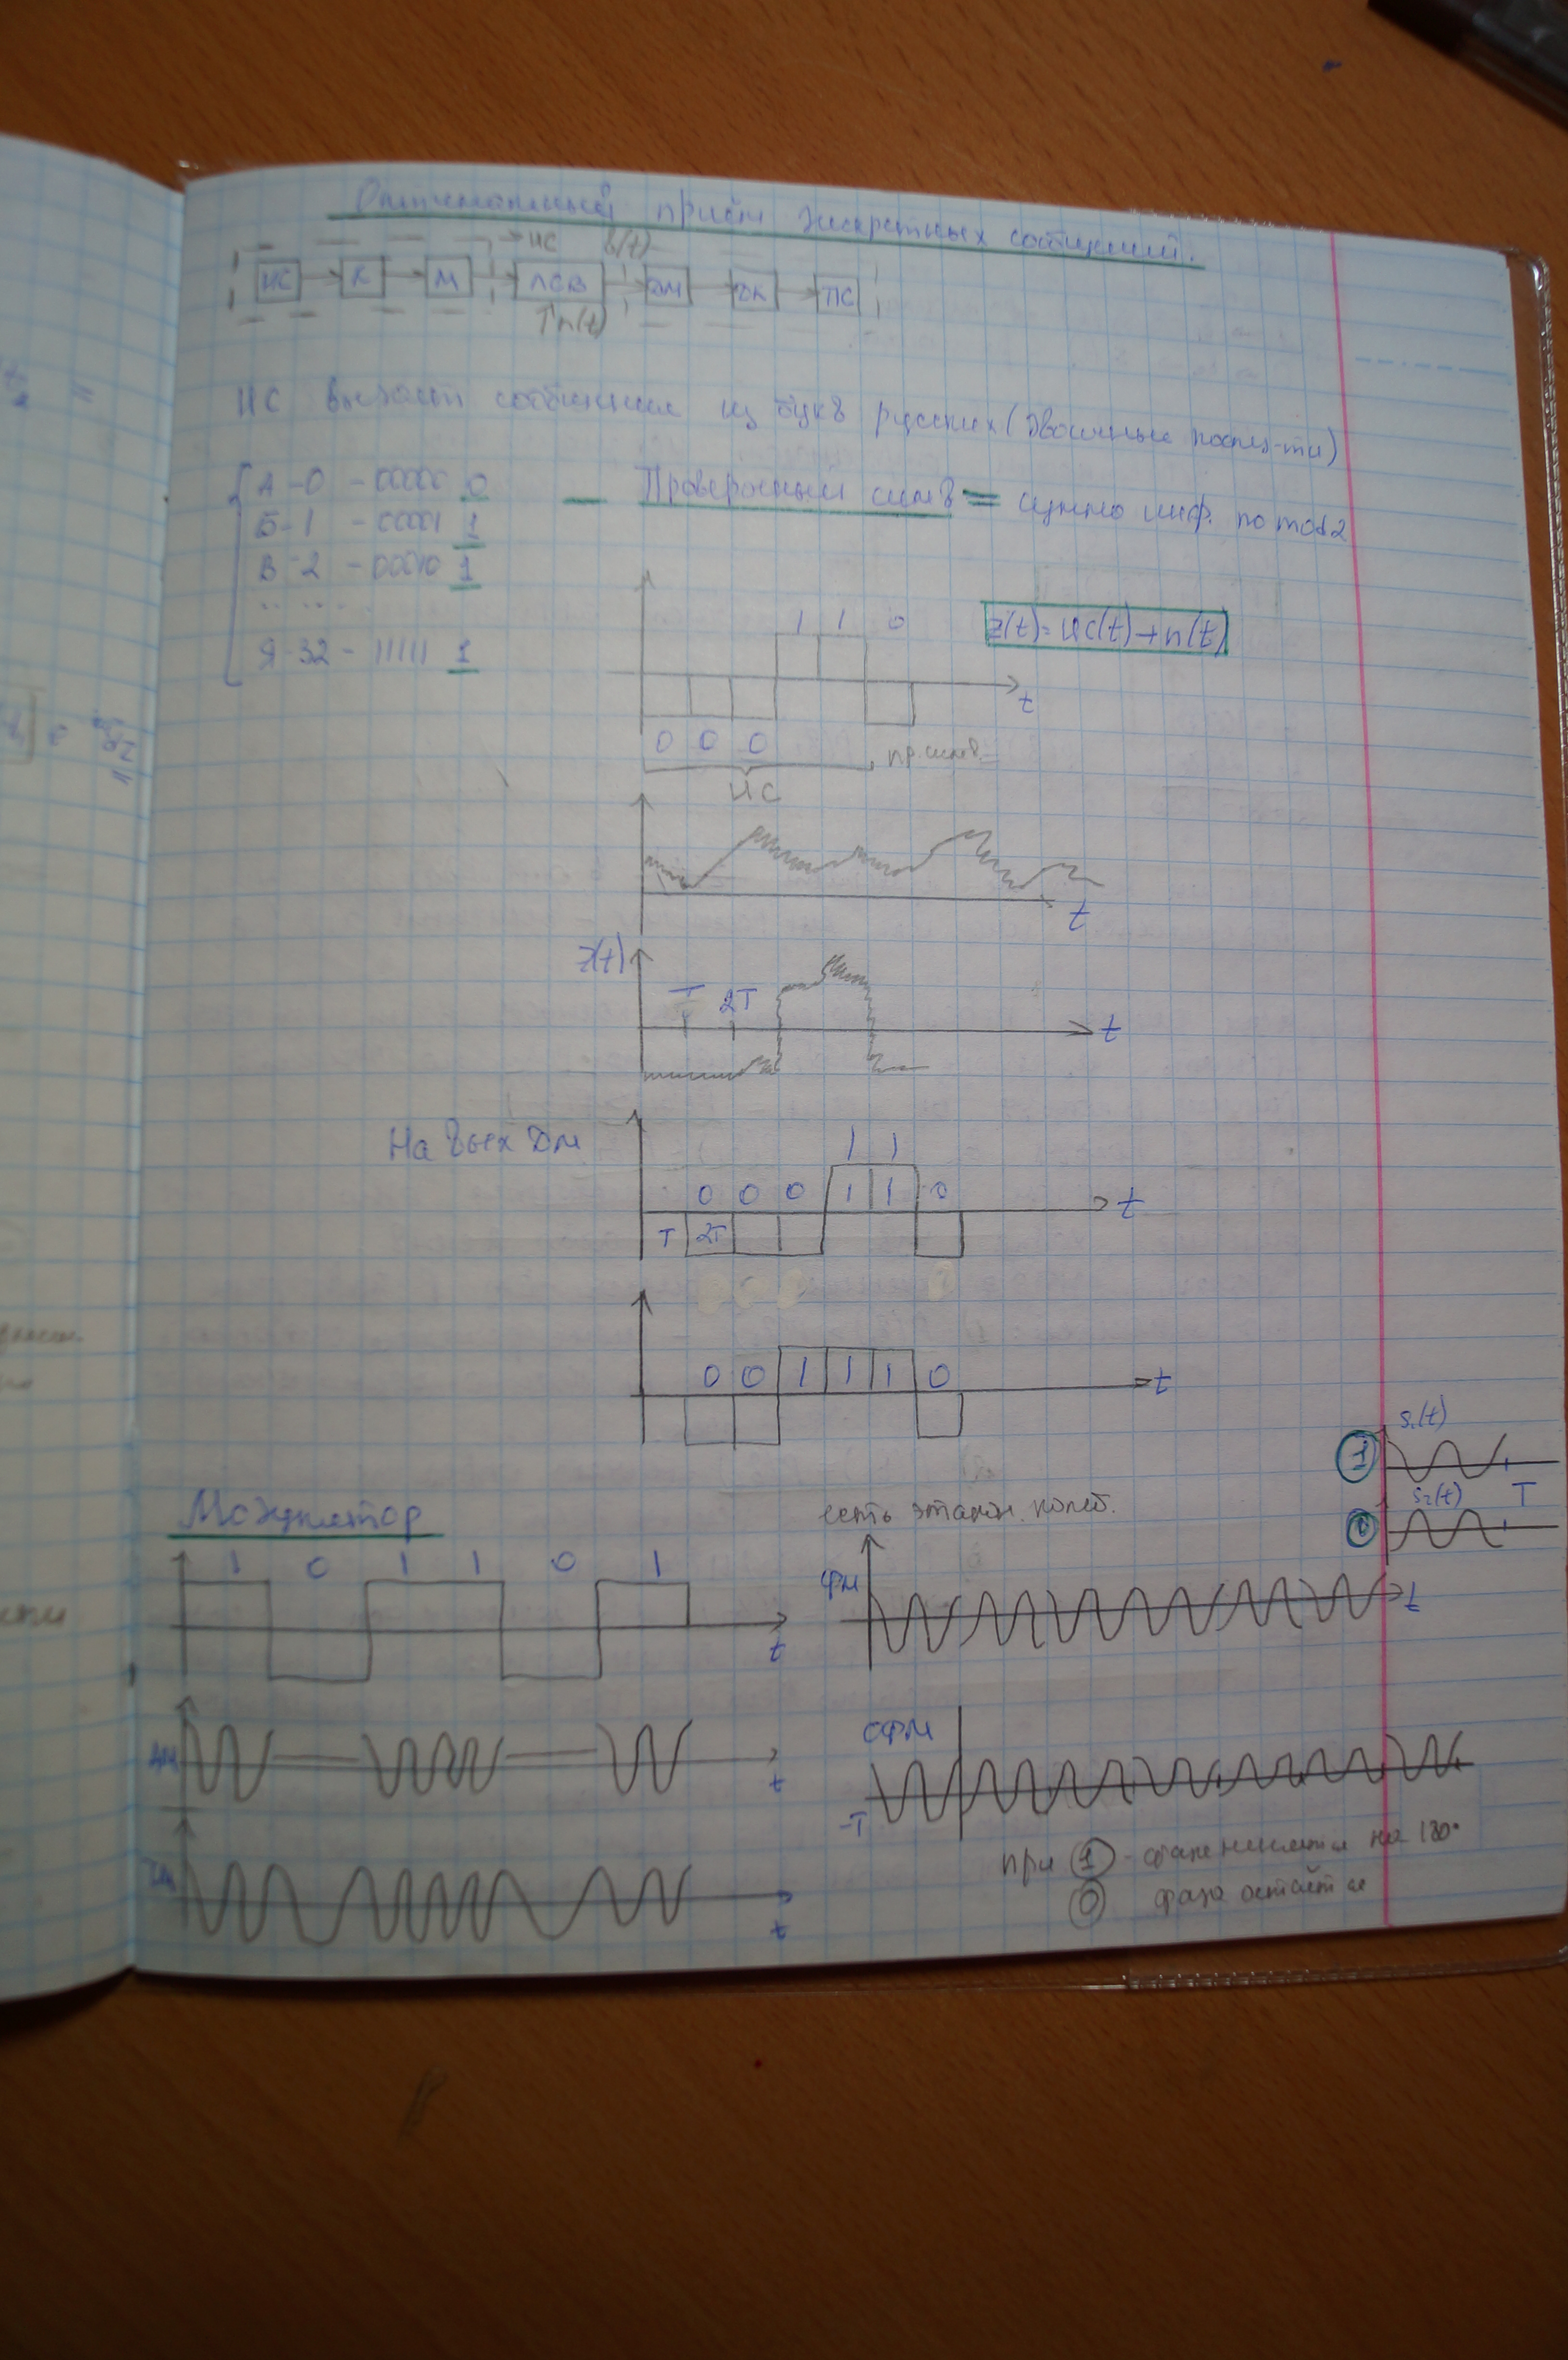 Оптимальный приём дискретных сообщений.
ИС К М ЛСВ ДМ ДК ПС
ИС выдаёт сообщения из букв русских (двоичные послед-ти)
А - 0 - 00000 0
Б - 1 - 00001 1
В - 2 - 00010 1
.. ...
Я - 32 - 11111 1
Проверочный симв = сумма инф. по mod2
1 1 0
z(t) = Uc(t) + n(t)
t
0 0 0
пр. симв.
ИС
t
z(t)
T 2T
t
На вых ДМ
1 1
0 0 0 1 1 0
t
T 2T
0 0 1 1 1 0
t
1 S₁(t)
0 S₂(t) T
Модулятор
1 0 1 1 0 1
t
АМ
t
ЧМ
t
есть эталон. колеб.
ФМ
t
ОФМ
-T
при 1 - фаза меняется на 180°
0 фаза остаётся